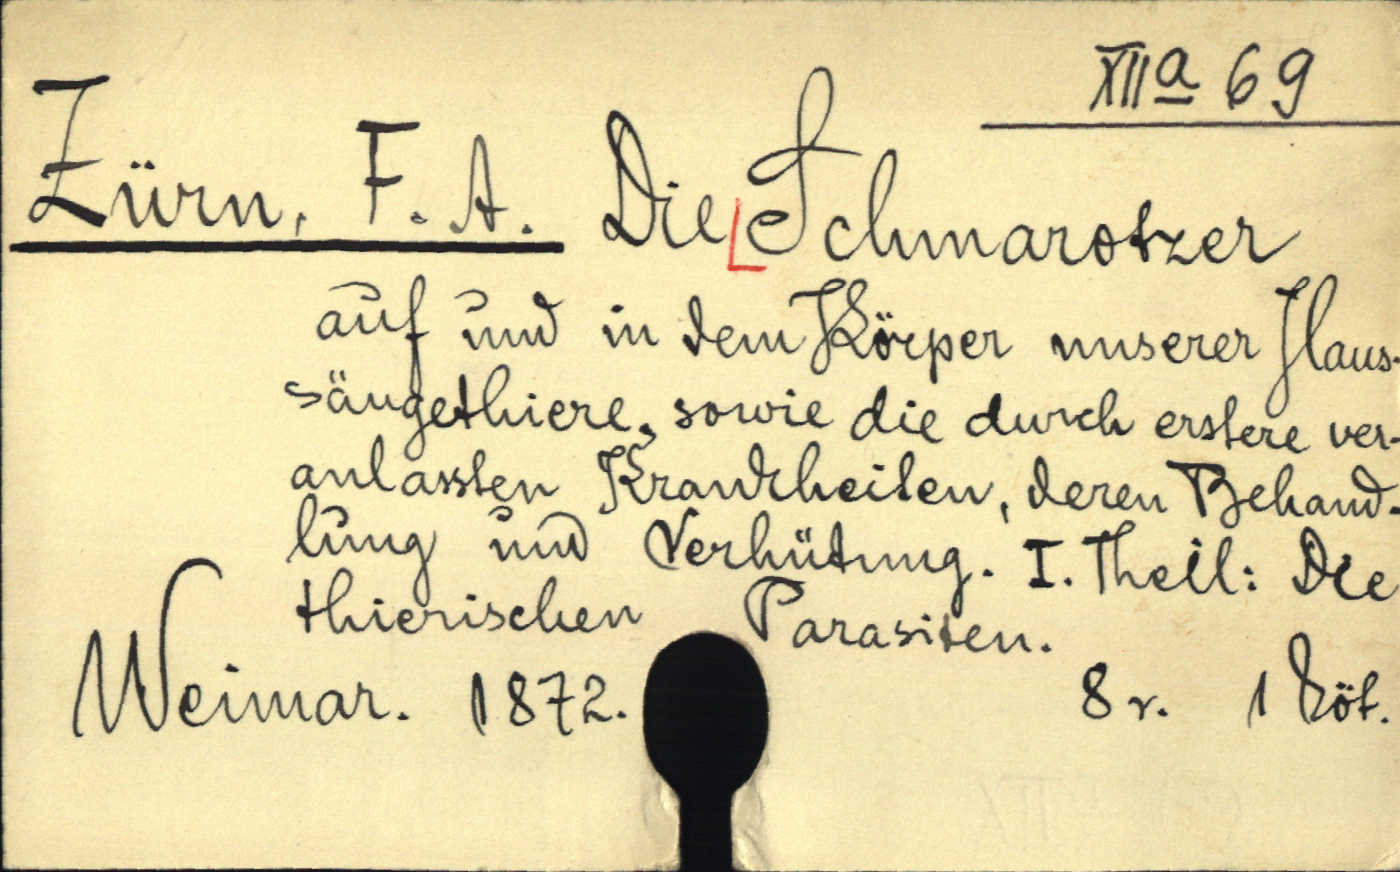 XIIa 69
Zürn, F. A. Die Schmarotzer
auf und in dem Körper unserer Haus-
säugethiere, sowie die durch erstere ver-
anlassten Krankheiten, deren Behand-
lung und Verhütung. I. Theil: Die
thierischen Parasiten.
Weimar. 1872. 8r. 1 köt.